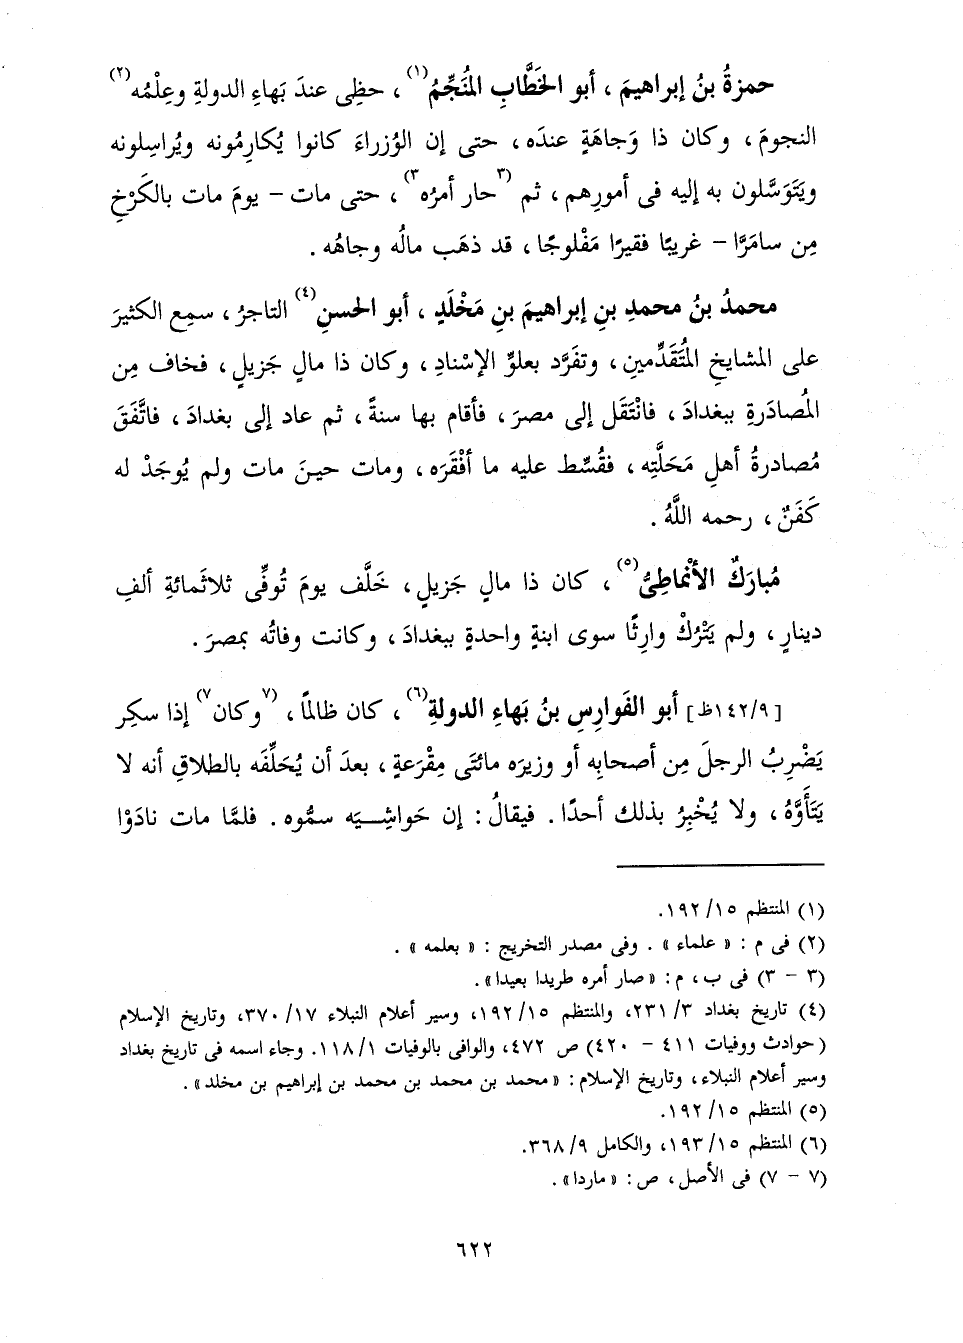 حمزةُ بنُ إبراهيمَ ، أبو الخَطَّابِ المُنَجِّمُ(١) ، حظِى عندَ بَهاءِ الدولةِ وعِلْمُه(٢)
النجومَ ، وكان ذا وَجاهَةٍ عندَه ، حتى إن الوُزراءَ كانوا يُكارِمُونه ويُراسِلونه
ويَتَوَسَّلون به إليه فى أمورِهم ، ثم (٣حار أمرُه٣) ، حتى مات - يومَ مات بالكَرْخِ
مِن سامَرَّا - غريبًا فقيرًا مَفْلوجًا ، قد ذهَب مالُه وجاهُه .
محمدُ بنُ محمدِ بنِ إبراهيمَ بنِ مَخْلَدٍ ، أبو الحسنِ(٤) التاجرُ ، سمِع الكثيرَ
على المشايخِ المُتَقَدِّمين ، وتفَرَّد بعلوِّ الإسْنادِ ، وكان ذا مالٍ جَزيلٍ ، فخاف مِن
المُصادَرةِ ببغدادَ ، فانْتَقَل إلى مصرَ ، فأقام بها سنةً ، ثم عاد إلى بغدادَ ، فاتَّفَقَ
مُصادرةُ أهلِ مَحَلَّتِه ، فقُسِّط عليه ما أفْقَرَه ، ومات حينَ مات ولم يُوجَدْ له
كَفَنٌ ، رحمه اللَّهُ .
مُبارَكٌ الأنْماطِىُّ(٥) ، كان ذا مالٍ جَزيلٍ ، خَلَّف يومَ تُوفِّى ثلاثَمائةِ ألفِ
دينارٍ ، ولم يَتْرُكْ وارِثًا سوى ابنةٍ واحدةٍ ببغدادَ ، وكانت وفاتُه بمصرَ .
[١٤٢/٩ظ] أبو الفَوارِسِ بنُ بَهاءِ الدولةِ(٦) ، كان ظالماً ، (٧وكان٧) إذا سكِر
يَضْرِبُ الرجلَ مِن أصحابِه أو وزيرَه مائتَى مِقْرَعةٍ ، بعدَ أن يُحَلِّفَه بالطلاقِ أنه لا
يَتَأَوَّهُ ، ولا يُخْبِرُ بذلك أحدًا . فيقالُ : إن حَواشِيَه سمُّوه . فلمَّا مات نادَوْا
(١) المنتظم ١٥/ ١٩٢.
(٢) فى م : « علماء » . وفى مصدر التخريج : « بعلمه » .
(٣ - ٣) فى ب ، م : «صار أمره طريدا بعيدا» .
(٤) تاريخ بغداد ٣/ ٢٣١، والمنتظم ١٥/ ١٩٢، وسير أعلام النبلاء ١٧/ ٣٧٠، وتاريخ الإسلام
(حوادث ووفيات ٤١١ - ٤٢٠) ص ٤٧٢، والوافى بالوفيات ١/ ١١٨. وجاء اسمه فى تاريخ بغداد
وسير أعلام النبلاء ، وتاريخ الإسلام : «محمد بن محمد بن محمد بن إبراهيم بن مخلد» .
(٥) المنتظم ١٥/ ١٩٢.
(٦) المنتظم ١٥/ ١٩٣، والكامل ٩/ ٣٦٨.
(٧ - ٧) فى الأصل ، ص : «ماردا» .
٦٢٢